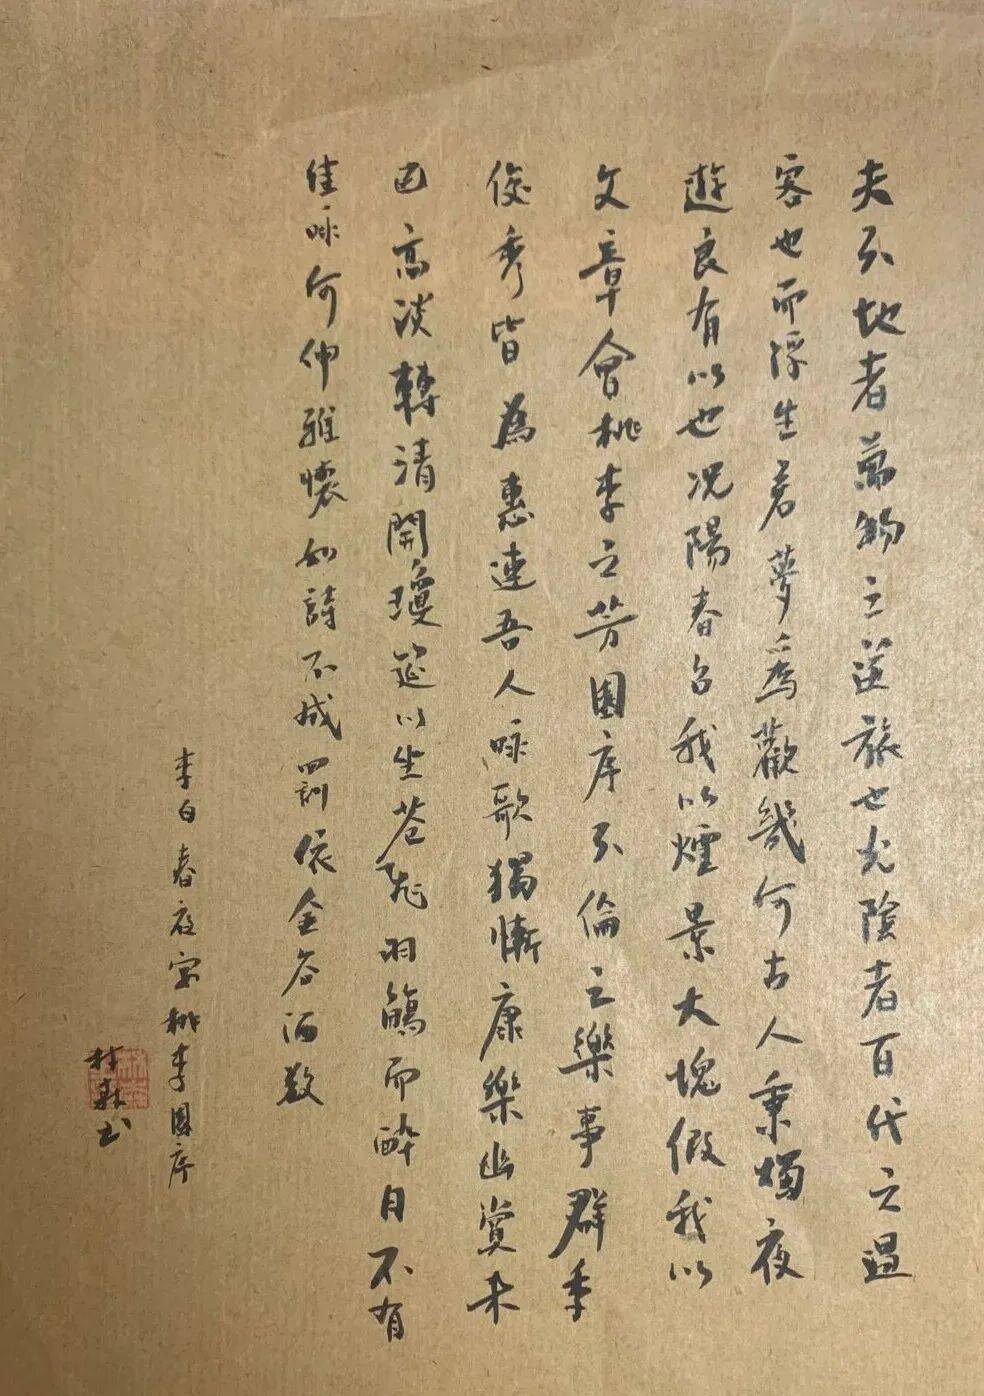 夫天地者萬物之逆旅也光陰者百代之過
客也而浮生若夢爲歡幾何古人秉燭夜
遊良有以也况陽春召我以煙景大塊假我以
文章會桃李之芳園序天倫之樂事群季
俊秀皆為惠連吾人咏歌獨慚康樂幽賞未
已高談轉清開瓊筵以坐花飛羽觴而醉月不有
佳咏何伸雅懷如詩不成罰依金谷酒數
李白春夜宴桃李園序
書